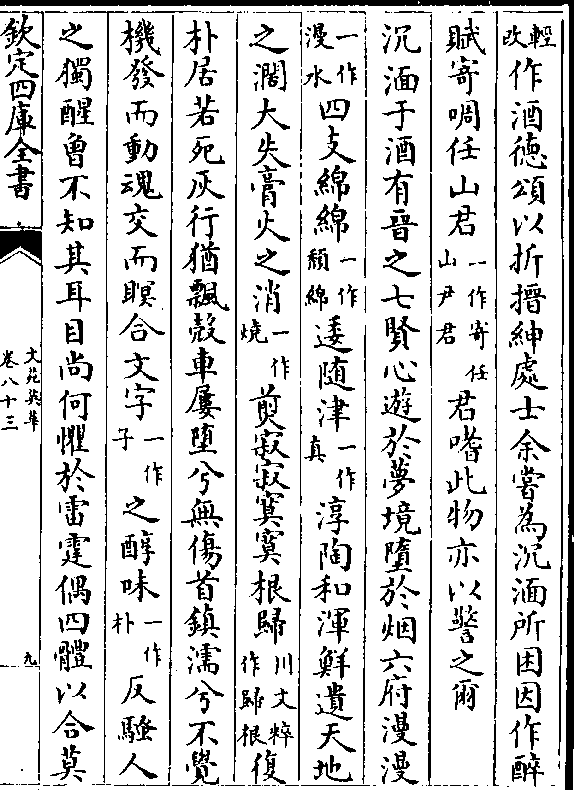 輕改作酒德頌以折搢紳處士余嘗為沉湎所困因作醉
賦寄啁任山君一作寄任山尹君君嗜此物亦以警之爾
沉湎于酒有晉之七賢心遊於夢境墮於烟六府漫漫
一作漫水四支綿綿一作顏綿逶随津一作真淳陶和渾鮮遺天地
之濶大失膏火之消一作燒煎寂寂寞寞根歸川文粹作歸根復
朴居若死灰行猶飄殼車屢墮兮無傷首鎮濡兮不覺
機發而動魂交而瞑合文字一作子之醇味一作朴反騷人
之獨醒曾不知其耳目尚何懼於雷霆偶四體以合莫
欽定四庫全書
文苑英華
卷八十三
九